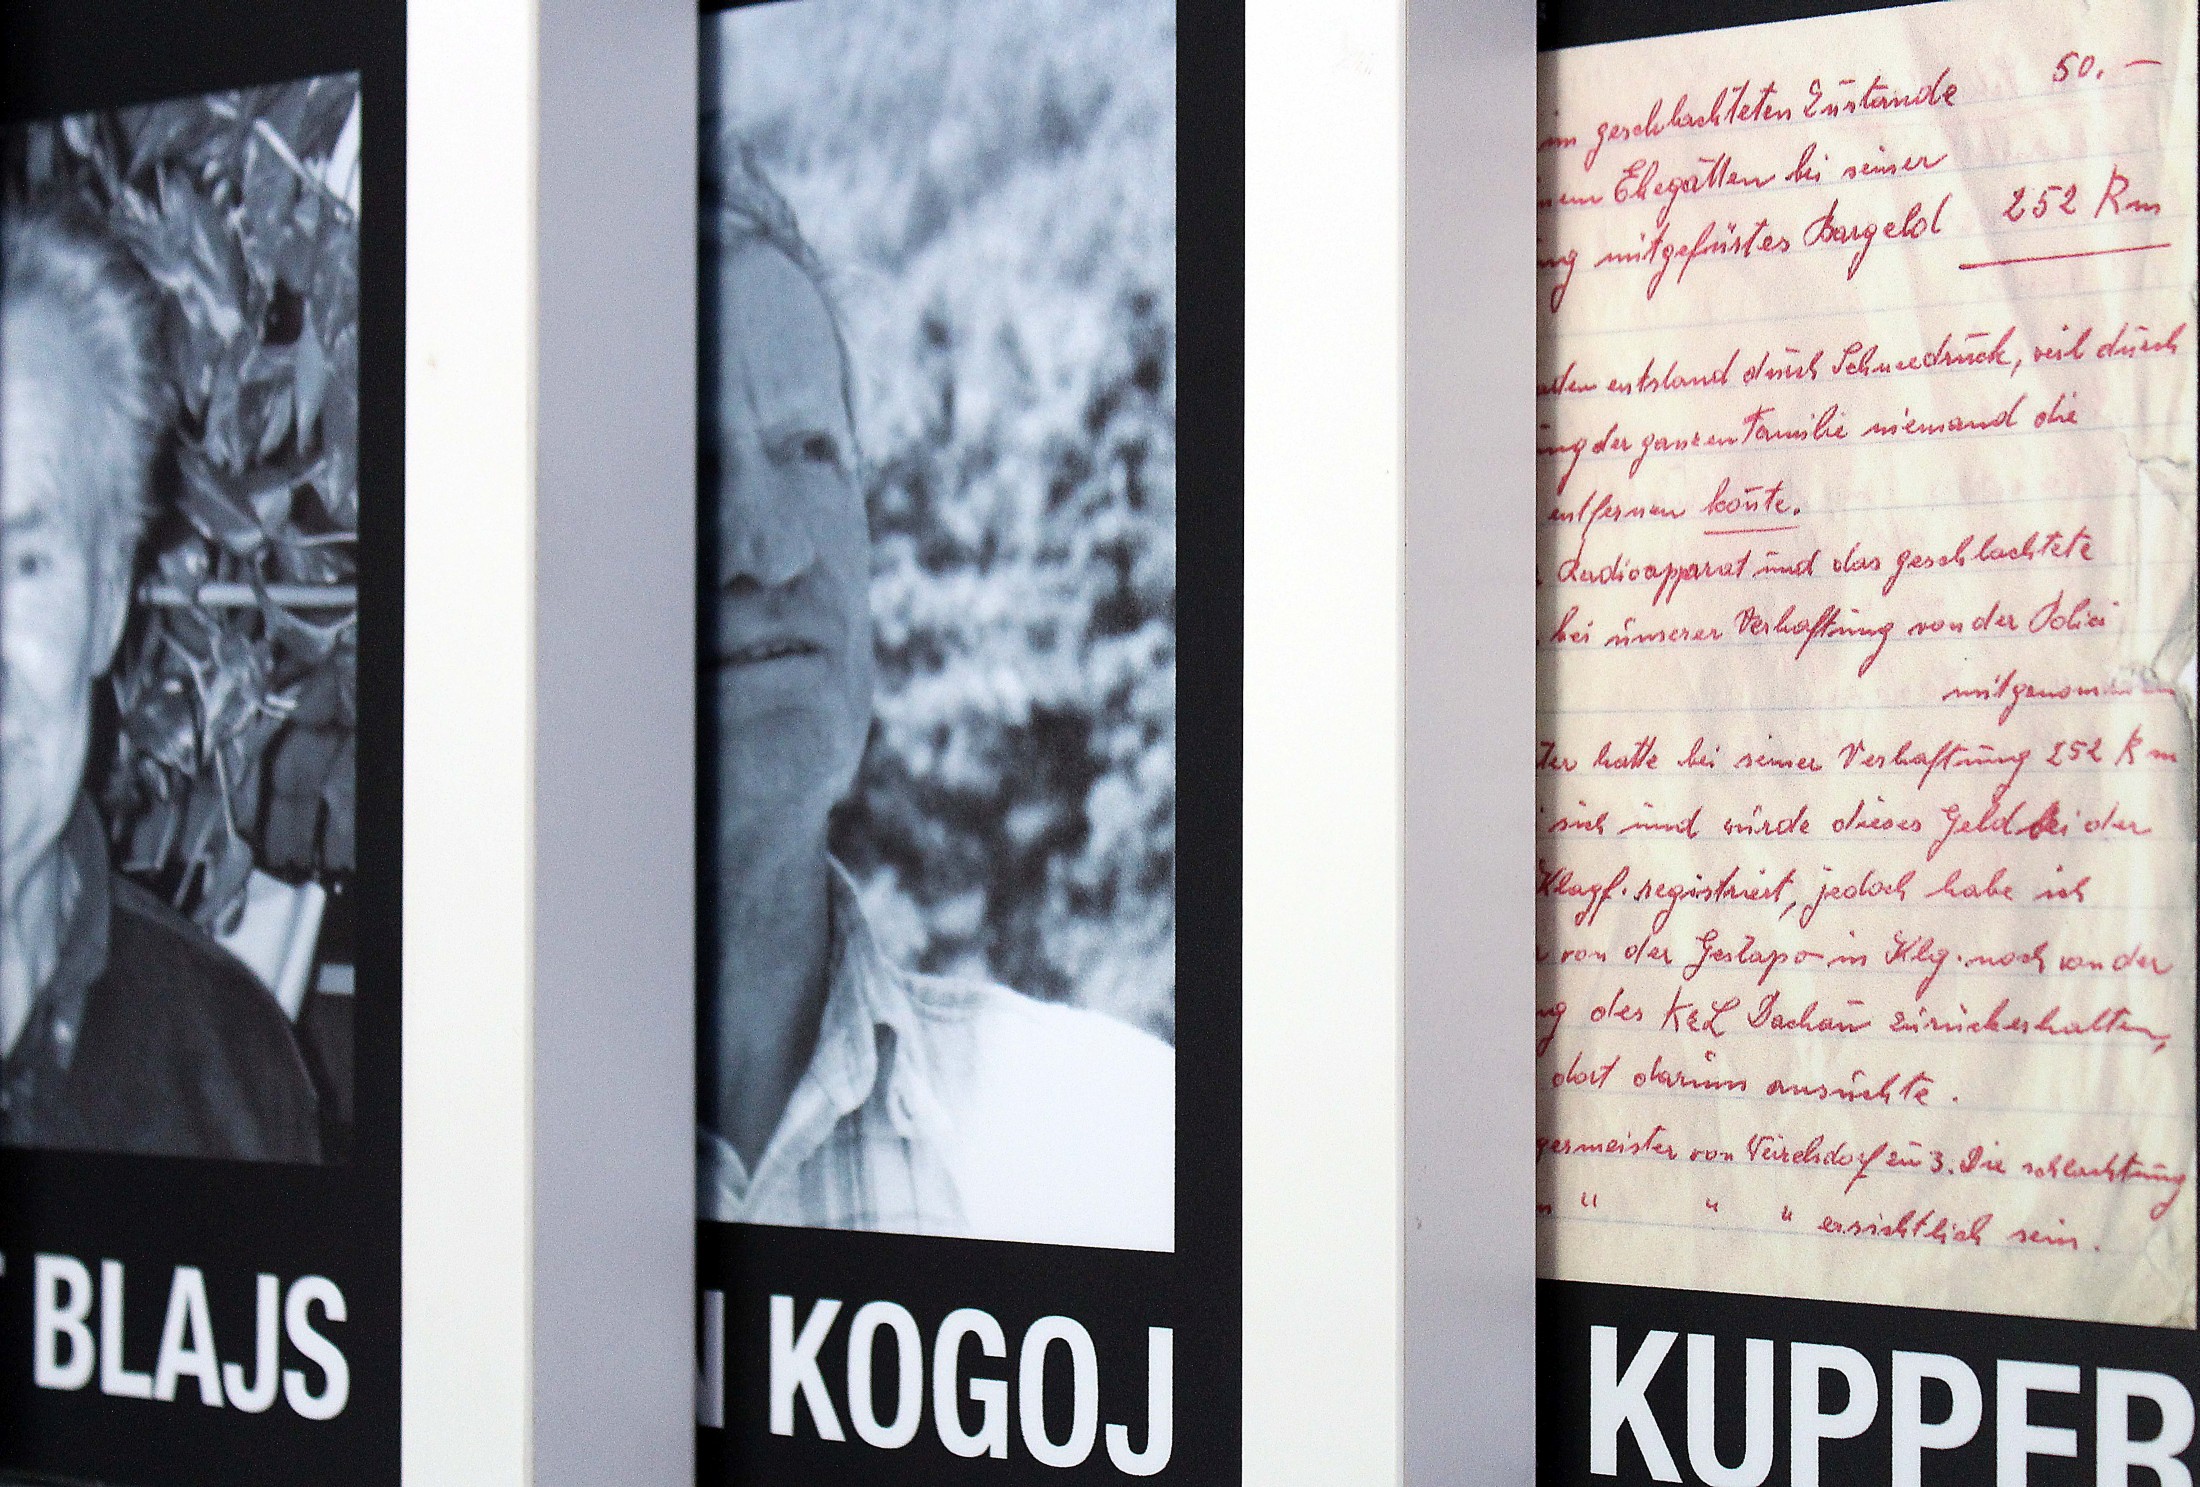 BLAJS
KOGOJ
im geschlachteten Zustande 50.—
Ehegatten bei seiner
mitgefürtes Bargeld 252 Rm
entstand durch Schneedruck, weil durch
der ganzen Familie niemand die
entfernen koñte.
Radioapparat und das geschlachtete
bei unserer Verhaftung von der Polizei
mitgenommen
hatte bei seiner Verhaftung 252 Rm
sich und würde dieses Geld bei der
Klagf. registriert, jedoch habe ich
von der Gestapo in Klg. noch von der
des KZL Dachau zurückerhalten,
dort darum ansuchte.
von zu 3. Die schlachtung
" " " ersichtlich sein.
KUPPER